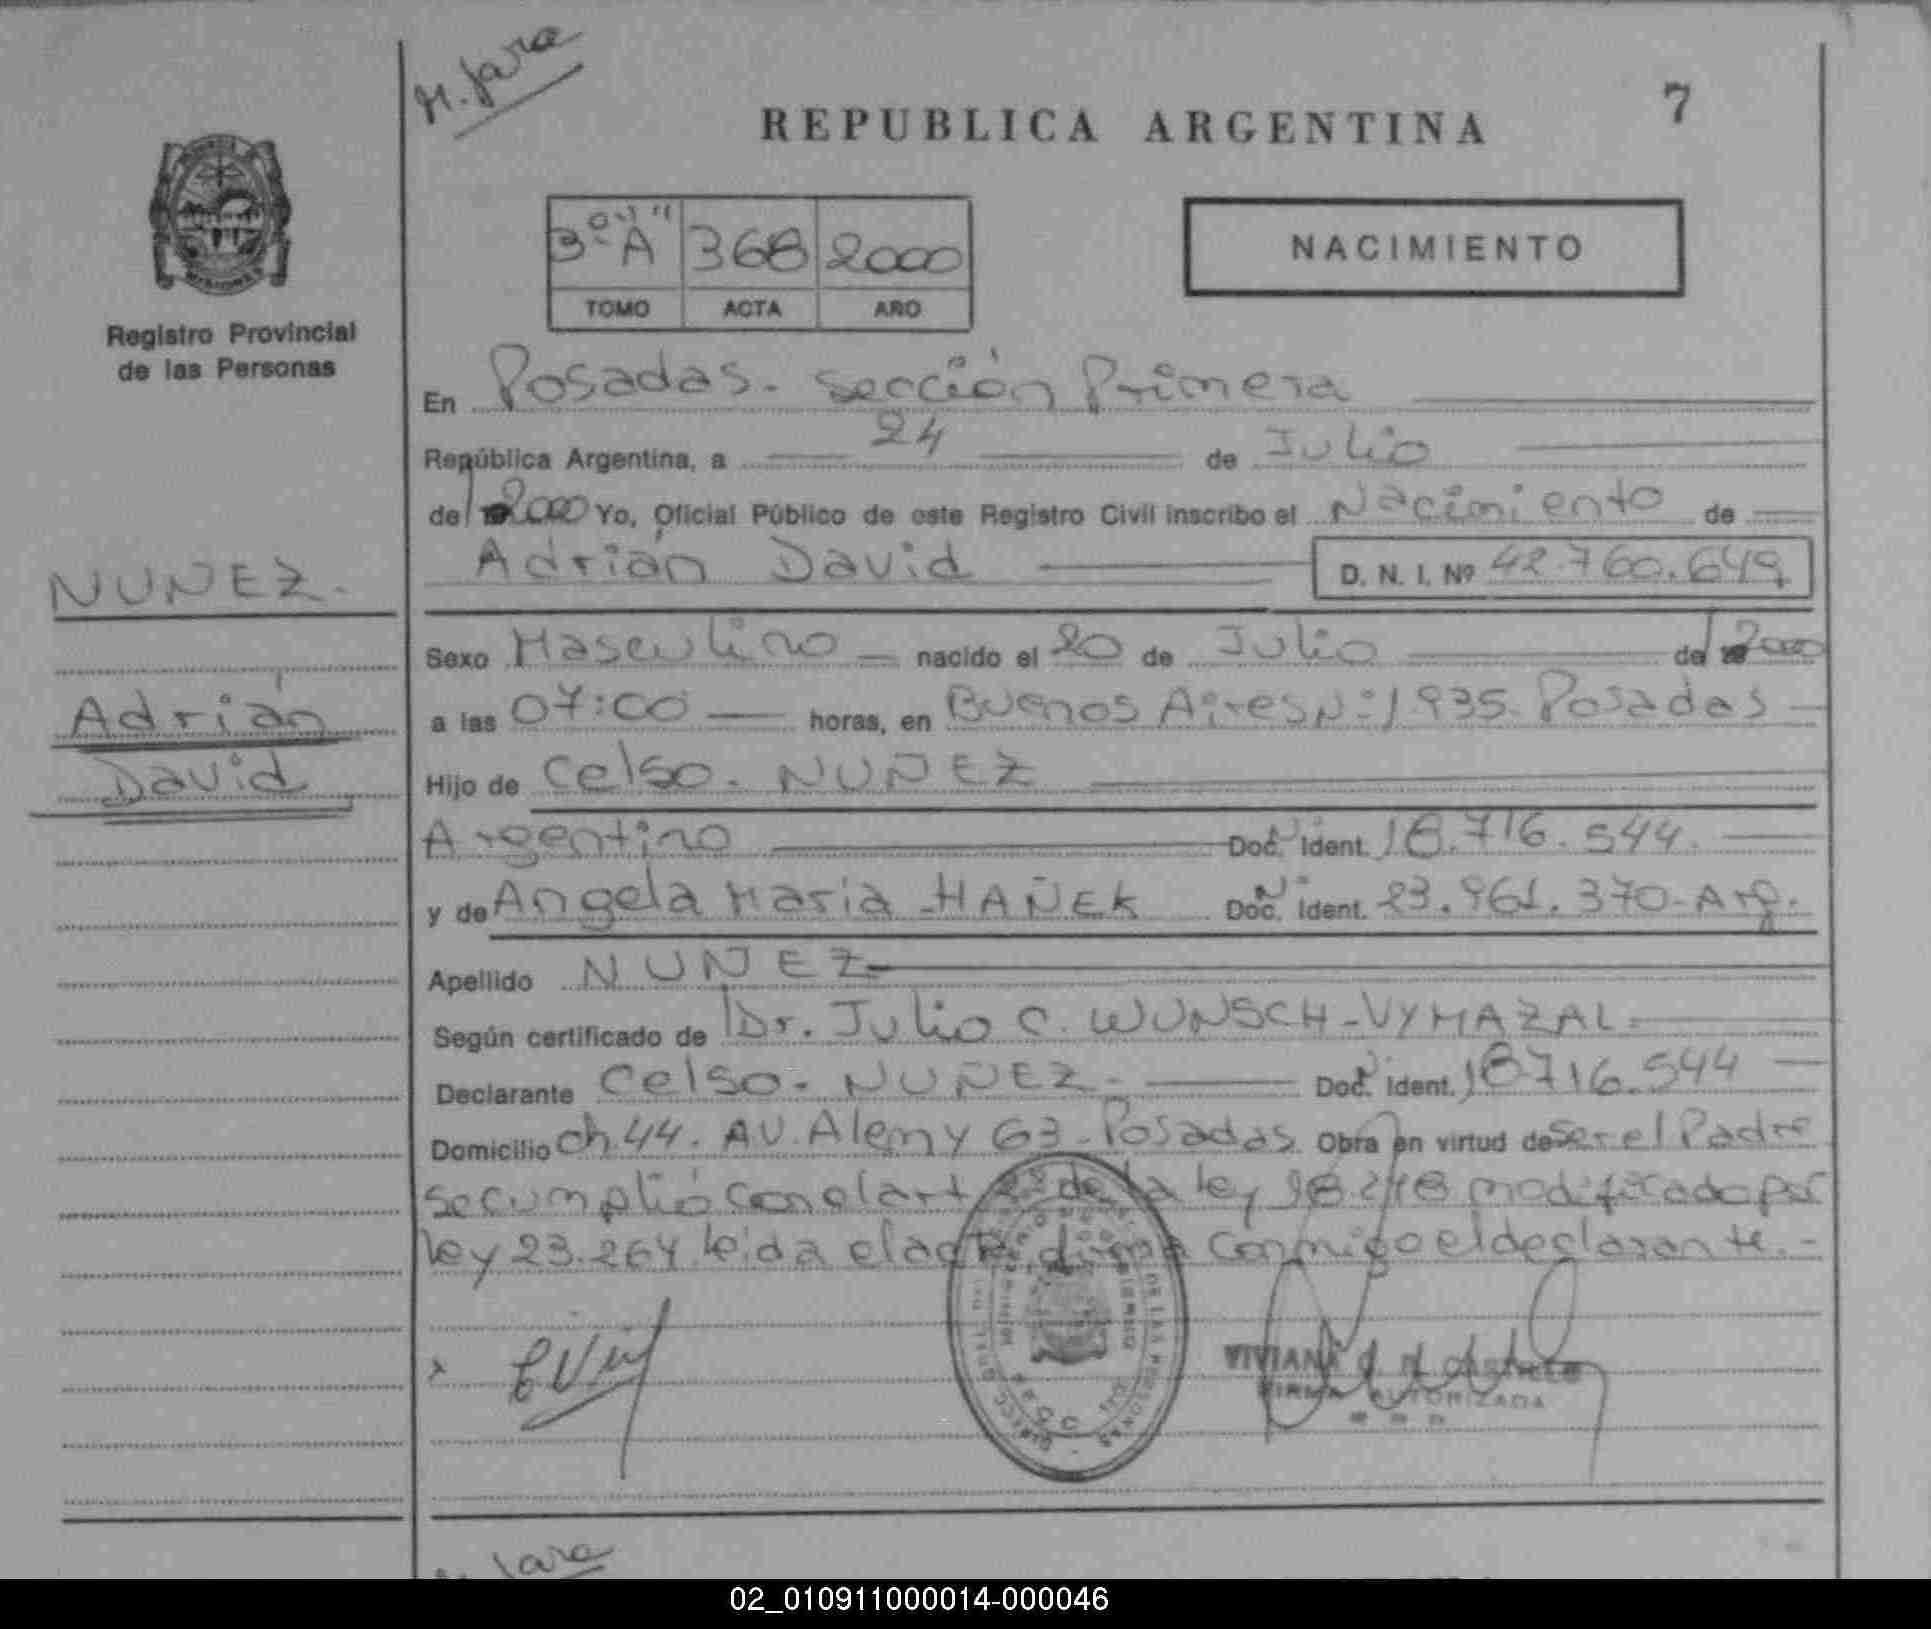 M. Jara
7
REPUBLICA ARGENTINA
Registro Provincial
de las Personas
3º "A" 368 2000
TOMO ACTA AÑO
NACIMIENTO
En Posadas. Sección Primera
República Argentina, a 24 de Julio
de 2000 Yo, Oficial Público de este Registro Civil inscribo el Nacimiento de
Adrián David D. N. I. Nº 42.760.649
NUÑEZ.
Adrián
David
Sexo Masculino nacido el 20 de Julio de 2000
a las 07:00 horas, en Buenos Aires Nº 1935. Posadas
Hijo de Celso. NUÑEZ
Argentino Doc. Ident. 18.716.544.
y de Angela Maria HAÑEK Doc. Ident. 23.961.370-Arg.
Apellido NUÑEZ
Según certificado de Dr. Julio C. WUNSCH-VYMAZAL
Declarante Celso. NUÑEZ. Doc. Ident. 18716.544
Domicilio Ch. 44. AV. Alem y 63. Posadas. Obra en virtud de Ser el Padre
se cumplió con el art de la ley 18.248 modificado por
ley 23.264 leida el acta firma conmigo el declarante.-
VIVIANA
FIRMA AUTORIZADA
Jara
02_010911000014-000046